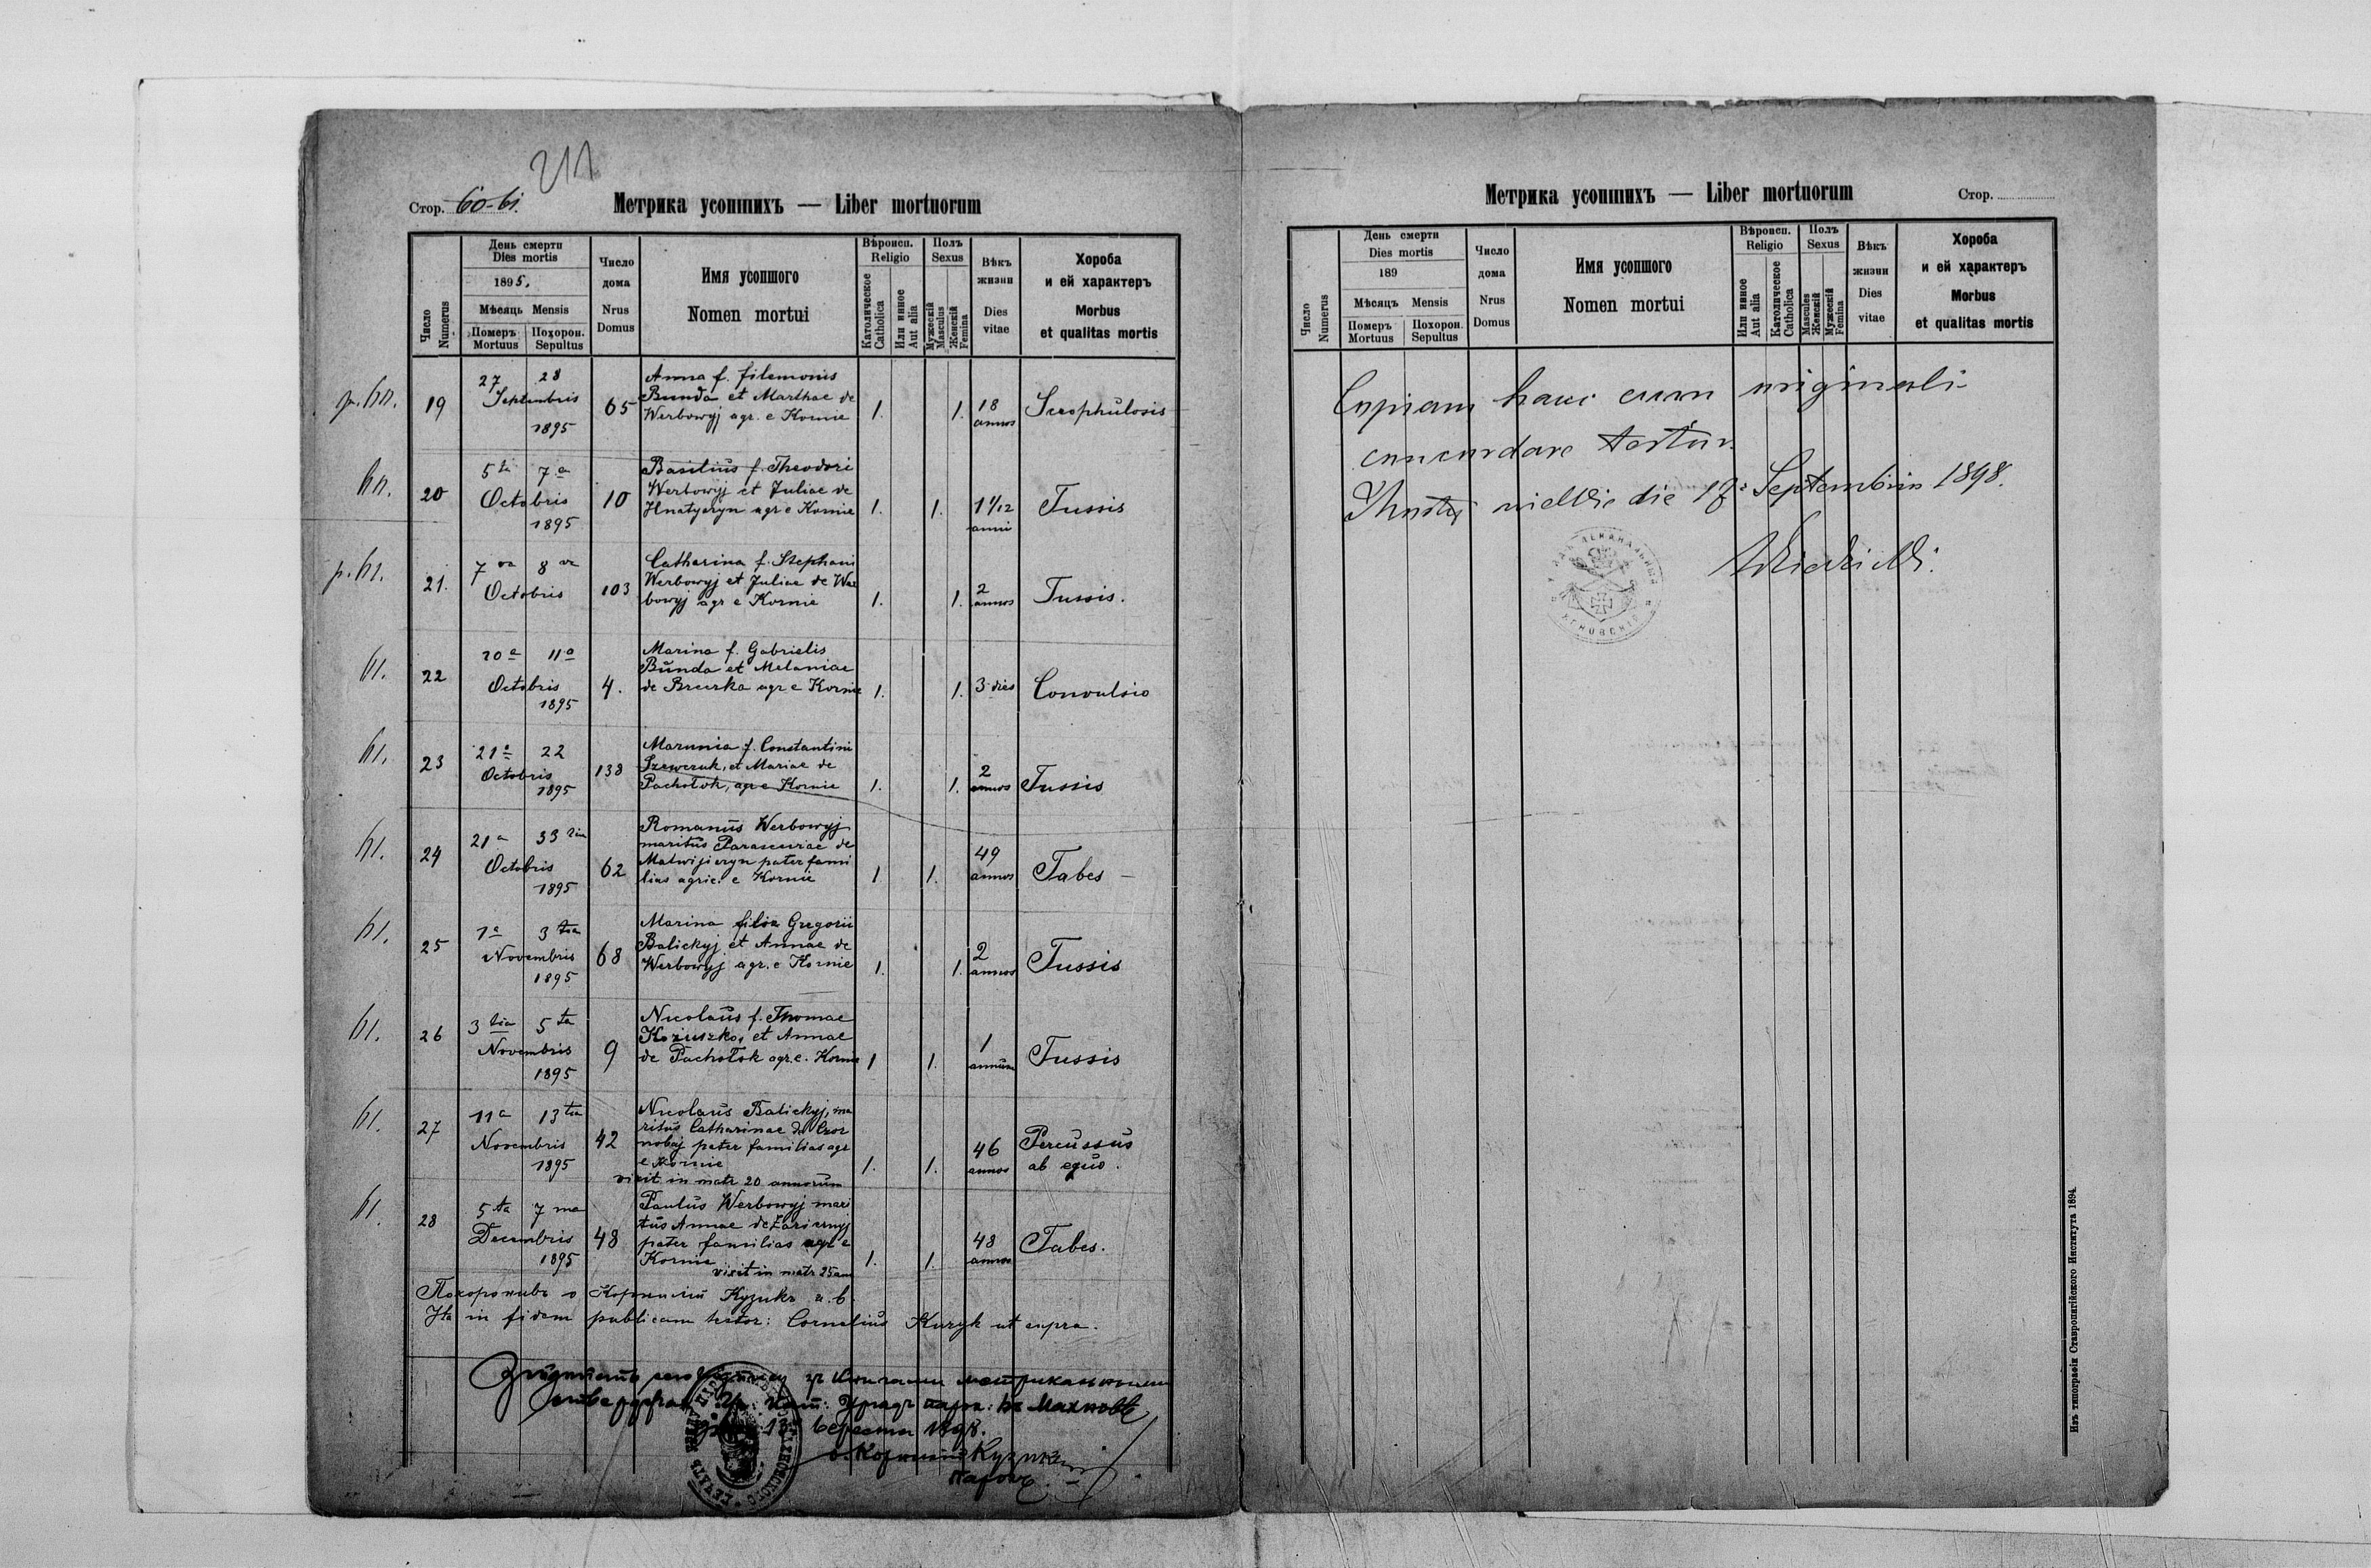 211
Стор. 60-61.
Метрика усопшихъ — Liber mortuorum
Число
Numerus
День смерти
Dies mortis
1895.
Мѣсяць Mensis
Померъ
Mortuus
Похорон.
Sepultus
Число
дома
Nrus
Domus
Имя усопшого
Nomen mortui
Вѣроисп.
Religio
Католическое
Catholica
Или инное
Aut alia
Полъ
Sexus
Мужескій
Masculus
Женскій
Femina
Вѣкъ
жизни
Dies
vitae
Хороба
и ей характеръ
Morbus
et qualitas mortis
19
27 28
Septembris
1895
65
Anna f. filemonis
Bunda et Marthae de
Werbowyj agr. e Kornie
1. 1.
18
annos
Scrophulosis
20
5ta 7a
Octobris
1895
10
Basilius f. Theodori
Werbowyj et Juliae de
Hnatyszyn agr e Kornie
1. 1.
1 1/12
anni
Tussis
21.
7va 8va
Octobris
103
Catharina f. Stephani
Werbowyj et Juliae de Wer
bowyj agr e Kornie
1. 1.
2
annos
Tussis.
22
10a 11a
Octobris
1895
4.
Marina f. Gabrielis
Bunda et Melaniae
de agr e Kornie
1. 1.
3 dies
Convulsio
23
21a 22
Octobris
1895
138
Marunia f. Constantini
Szewczuk, et Mariae de
Pachołok, agr e Kornie
1. 1.
2
annos
Tussis
24
21a 33
Octobris
1895
62
Romanus Werbowyj
maritus Parasceviae de
Matwijiszyn pater fami
lias agric. e Kornie
1 1.
49
annos
Tabes
25
1a 3tia
Novembris
1895
68
Marina filia Gregorii
Balickyj et Annae de
Werbowyj agr. e Kornie
1. 1.
2
annos
Tussis
26
3tia 5ta
Novembris
1895
9
Nicolaus f. Thomae
et Annae
de Pachołok agr. e. Kornie
1 1.
1
annum
Tussis
27
11a 13tia
Novembris
1895
42
Nicolaus Balickyj, ma
ritus Catharinae de Czor
nobaj pater familias agr
e Kornie
vixit in matr 20 annorum
1. 1.
46
annos
Percussus
ab equo.
28
5ta 7ma
Decembris
1895
48
Paulus Werbowyj mari
tus Annae de
pater familias agr e
Kornie
vixit in matr 25 ann
1. 1.
48
annos
Tabes.
Похоронивъ о Корнилій Кузикъ
Ita in fidem publicam testor: Cornelius Kuzyk ut supra.
1898.
о. Корнилій Кузикъ
парохъ
Метрика усопшихъ — Liber mortuorum
Стор.
Число
Numerus
День смерти
Dies mortis
189
Мѣсяцъ Mensis
Померъ
Mortuus
Похорон.
Sepultus
Число
дома
Nrus
Domus
Имя усопшого
Nomen mortui
Вѣроисп.
Religio
Или инное
Aut alia
Католическое
Catholica
Полъ
Sexus
Masculus
Женскій
Мужескій
Femina
Вѣкъ
жизни
Dies
vitae
Хороба
и ей характеръ
Morbus
et qualitas mortis
Copiam hanc cum originali
concordare testor.
die 17 Septembris 1898.
Изъ типографіи Ставропигійского Института 1894.